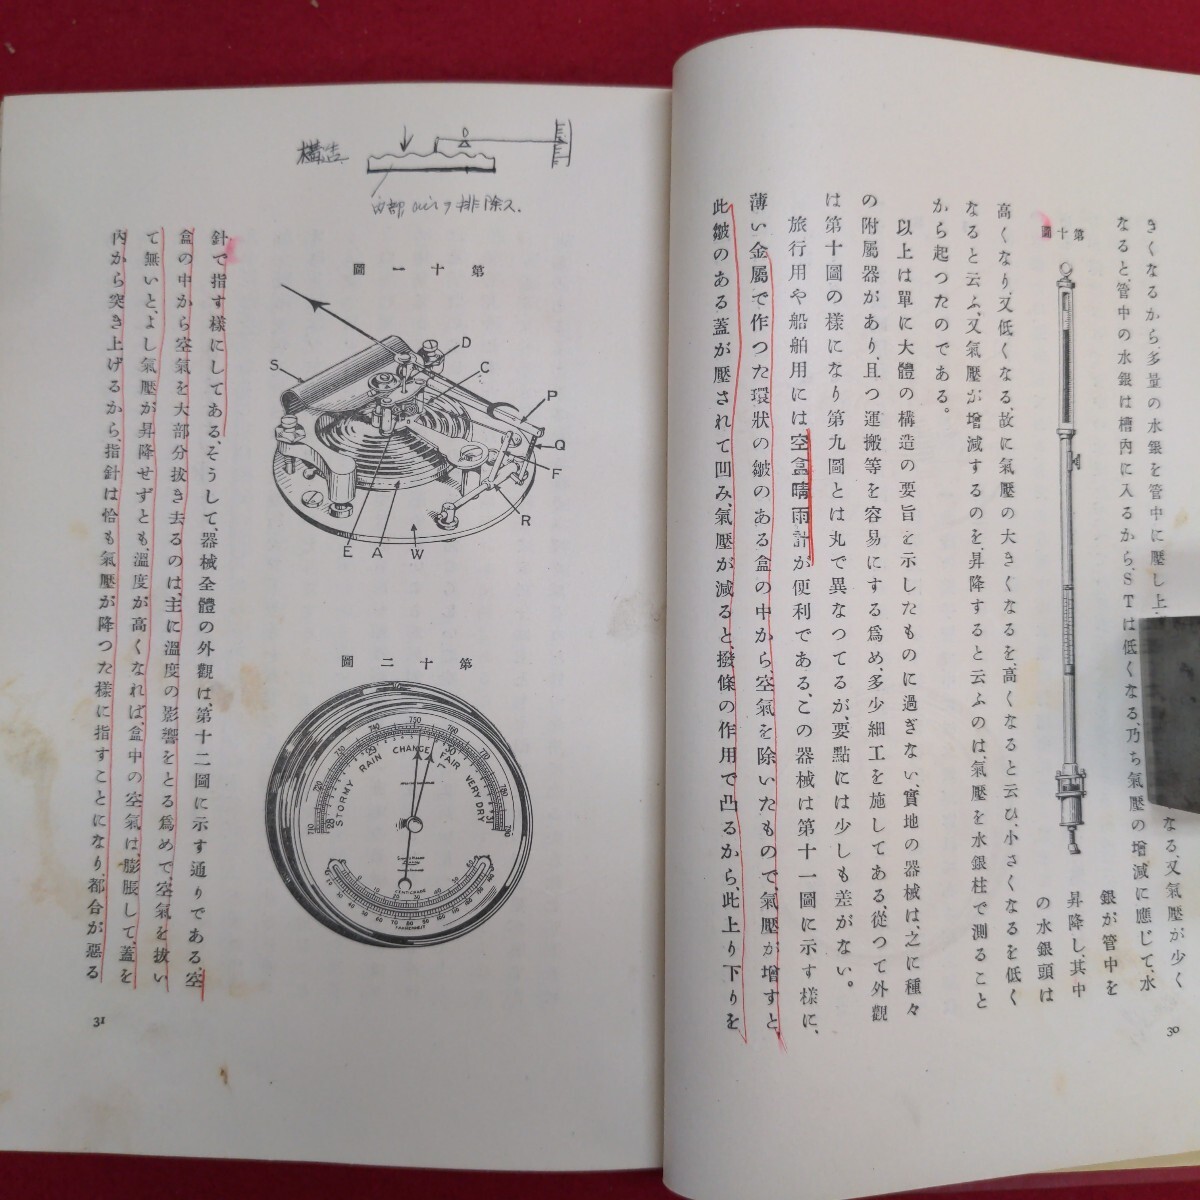 きくなるから、多量の水銀を管中に壓し上
なる、又氣壓が少く
なると、管中の水銀は槽內に入るから、STは低くなる、乃ち氣壓の增減に應じて、水
銀が管中を
昇降し、其中
の水銀頭は
第十圖
高くなり、又低くなる、故に氣壓の大きくなるを、高くなると云ひ、小さくなるを低く
なると云ふ、又氣壓が增減するのを、昇降すると云ふのは、氣壓を水銀柱で測ること
から起つたのである。
以上は單に大體の構造の要旨を示したものに過ぎない、實地の器械は、之に種々
の附屬器があり、且つ運搬等を容易にする爲め、多少細工を施してある、從つて外觀
は第十圖の樣になり第九圖とは丸で異なつてるが、要點には少しも差がない。
旅行用や船舶用には空盒晴雨計が便利である、この器械は第十一圖に示す樣に、
薄い金屬で作つた環狀の皺のある盒の中から、空氣を除いたもので、氣壓が增すと、
此皺のある蓋が壓されて凹み、氣壓が減ると、撥條の作用で凸るから、此上り下りを
30
構造
内部airヲ排除ス.
第十一圖
S
D
C
P
Q
F
R
E
A
W
第十二圖
STORMY RAIN CHANGE FAIR VERY DRY
710 720 730 740 750 760 770 780 790
28 29 30 31
CENTIGRADE
FAHRENHEIT
針で指す樣にしてある、そうして、器械全體の外觀は、第十二圖に示す通りである、空
盒の中から空氣を大部分拔き去るのは、主に溫度の影響をとる爲めで、空氣を拔い
て無いと、よし氣壓が昇降せずとも、溫度が高くなれば、盒中の空氣は膨脹して、蓋を
內から突き上げるから、指針は恰も氣壓が降つた樣に指すことになり、都合が惡る
31